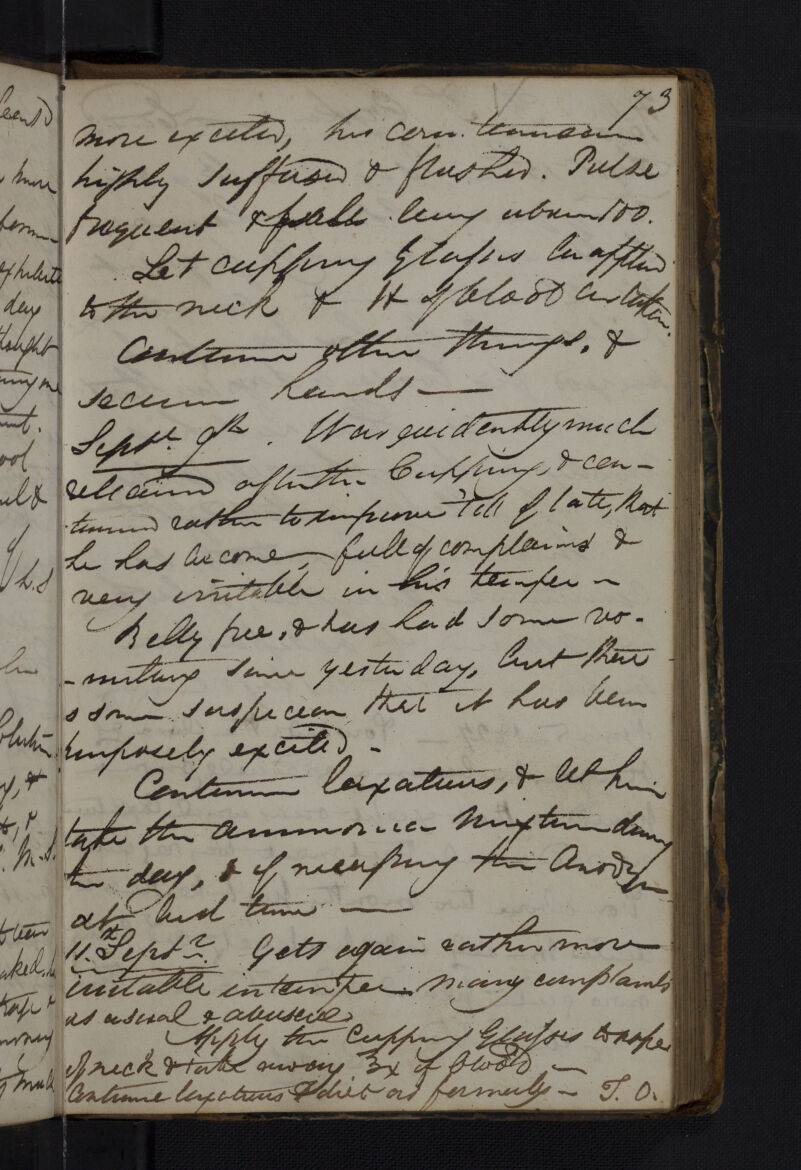 73
more excited, his countenance
highly suffused & flushed. Pulse
frequent & full being about 100.
Let cupping Glasses be applied
to the neck & ℔ of blood be taken.
Continue other things, &
secure hands —
Septr. 9th. Was evidently much
relieved after the Cupping, & con-
tinued rather to improve till of late, that
he has become full of complaints & 
very irritable in his temper —
Belly free, & has had some vo-
-miting since yesterday, but there
is some suspicion that it has been
purposely excited —
Continue laxatives, & let him
take the ammonia mixture during
the day, & if necessary the Anodyne
at bed time —
11th Septr. Gets again rather more
irritable in temper. Many complaints
as usual & abusive
Apply the Cupping Glasses to nape
of neck & take away ʒx of blood —
Continue laxatives & diet as formerly — T. O.